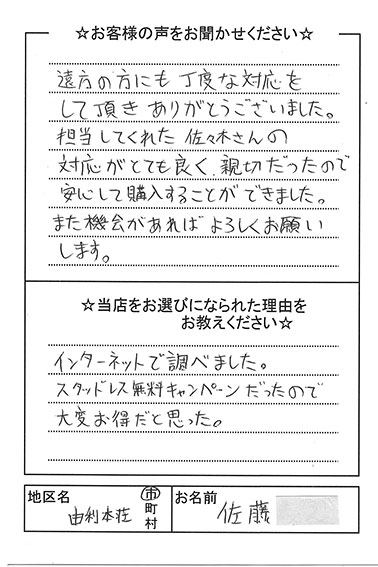 ☆お客様の声をお聞かせください☆
遠方の方にも丁度な対応を
して頂きありがとうございました。
担当してくれた佐々木さんの
対応がとても良く、親切だったので
安心して購入することができました。
また機会があればよろしくお願い
します。
☆当店をお選びになられた理由を
お教えください☆
インターネットで調べました。
スタッドレス無料キャンペーンだったので
大変お得だと思った。
地区名
由利本荘
市
町
村
お名前
佐藤